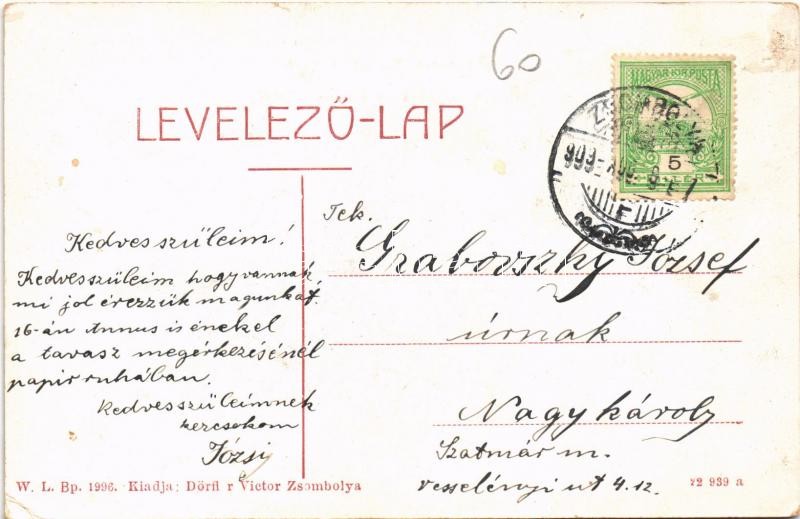 60
MAGYAR KIR. POSTA
5
LEVELEZŐ-LAP
Kedves szüleim!
Kedves szüleim hogy vannak,
mi jol érezzük magunkat.
16-án Annus is énekel
a tavasz megérkezésénél
papir ruhában.
Kedves szüleimnek
Józsi
Tek.
Grabovszky József
úrnak
Nagykároly
Szatmár m.
vesselényi ut 4.12.
W. L. Bp. 1996. Kiadja: Dörfl r Victor Zsombolya
72 939 a